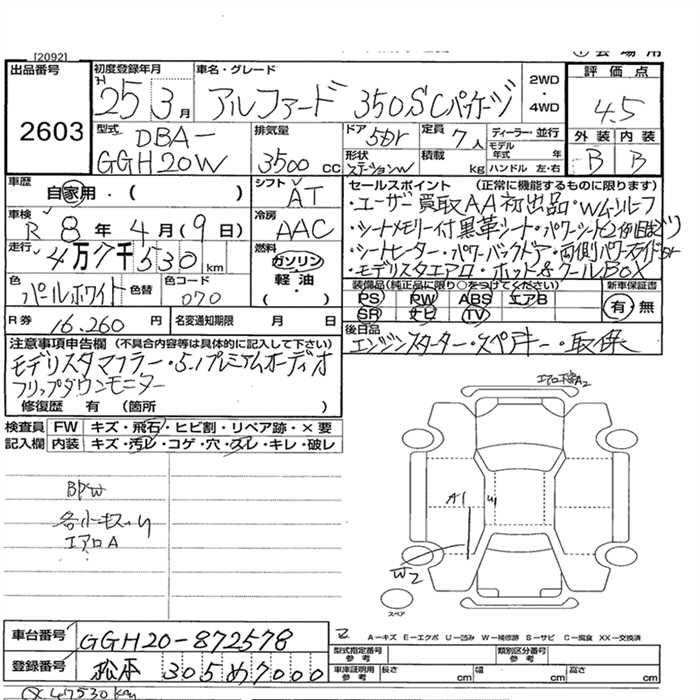 [2092]
出品番号
2603
初度登録年月
H 25 3月
車名・グレード
アルファード 350SCパッケージ
2WD
・
4WD
評価点
4.5
型式
DBA-
GGH20W
排気量
3500 cc
ドア
5Dr
定員
7人
ディーラー・並行
モデル
年式 年
形状
ステーションW
積載
kg
ハンドル 左・右
外装 内装
B B
車歴
自家用・( )
シフト
AT
セールスポイント (正常に機能するものに限ります)
・ユーザー買取AA初出品・Wムーンルーフ
・シートメモリー付黒革シート・パワーシート
・シートヒーター・パワーバックドア・両側パワースライドドア
・モデリスタエアロ・ホット&クールBOX
車検
R 8年 4月(9日)
冷房
AAC
走行
4万7千530km
燃料
ガソリン
・
軽油
・
( )
色
パールホワイト
色替
色コード
070
装備品(純正品に限り○をつけてください)
PS PW ABS エアB
SR ナビ TV
新車保証書
有・無
R券 16.260円
名変通知期限 月 日
後日品
エンジンスターター・スペアキー・取保
注意事項申告欄 (不具合内容等は具体的に記入して下さい)
モデリスタマフラー・5.1プレミアムオーディオ
フリップダウンモニター
修復歴 有 (箇所 )
検査員
記入欄
FW キズ・飛石・ヒビ割・リペア跡・×要
内装 キズ・汚レ・コゲ・穴・スレ・キレ・破レ
BPW
各小キズ・U
エアロA
エアロ下キズA2
A1
U1
W2
スペア
A-キズ E-エクボ U-凹み W-補修跡 S-サビ C-腐食 XX-交換済
車台番号 GGH20-872578
登録番号 松本 305め7000
型式指定番号
参考
類別区分番号
参考
車庫証明用
参考
長さ cm 幅 cm 高さ cm
47530km